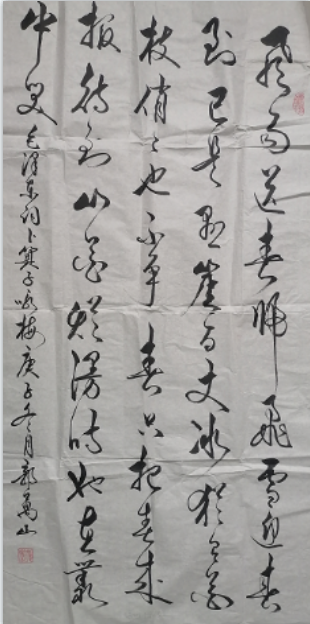 風雨送春歸飛雪迎春
到已是懸崖百丈冰猶有花
枝俏々也不爭春只把春來
報待到山花爛漫時她在叢
中笑 毛澤東詞卜算子咏梅庚子冬月郭萬山